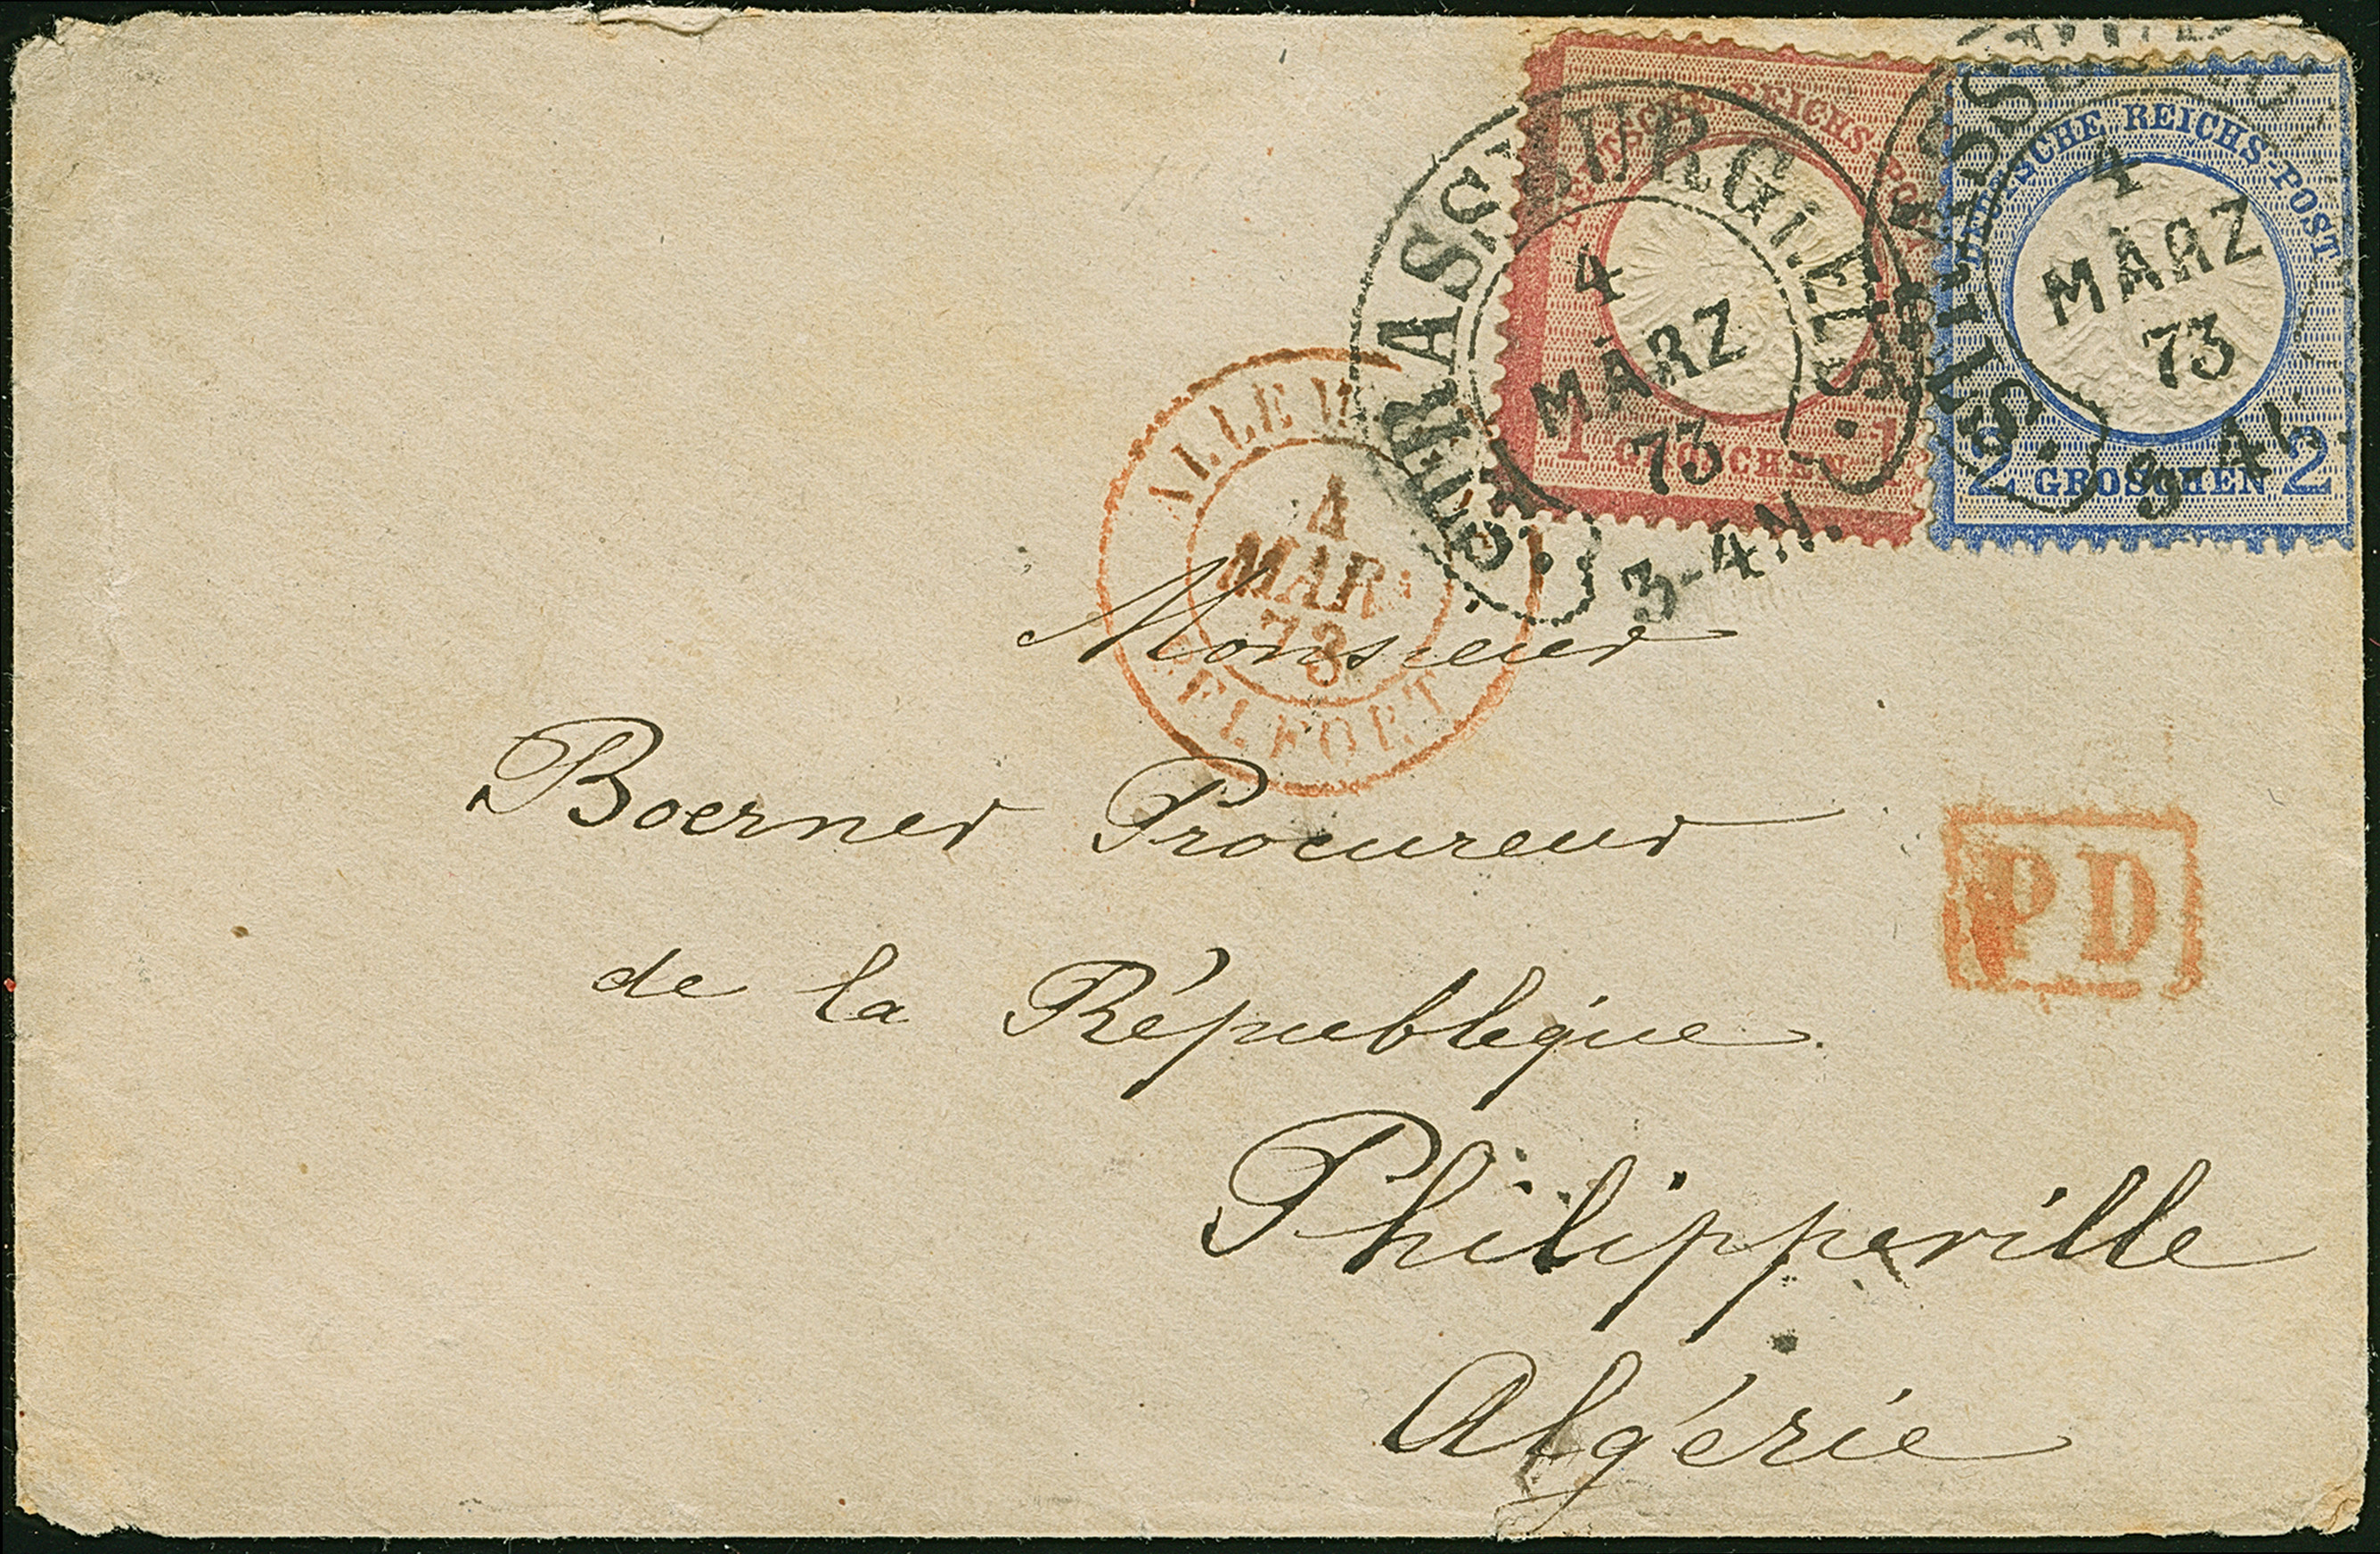 DEUTSCHE REICHS-POST
1 GROSCHEN 1
DEUTSCHE REICHS-POST
2 GROSCHEN 2
STRASSBURG i. ELSASS
4
MÄRZ
73
3-4 N.
4
MÄRZ
73
3-4 N.
ALLEM
4
MARS
73
BELFORT
Monsieur
Boerner Procureur
de la République
PD
Philippeville
Algérie